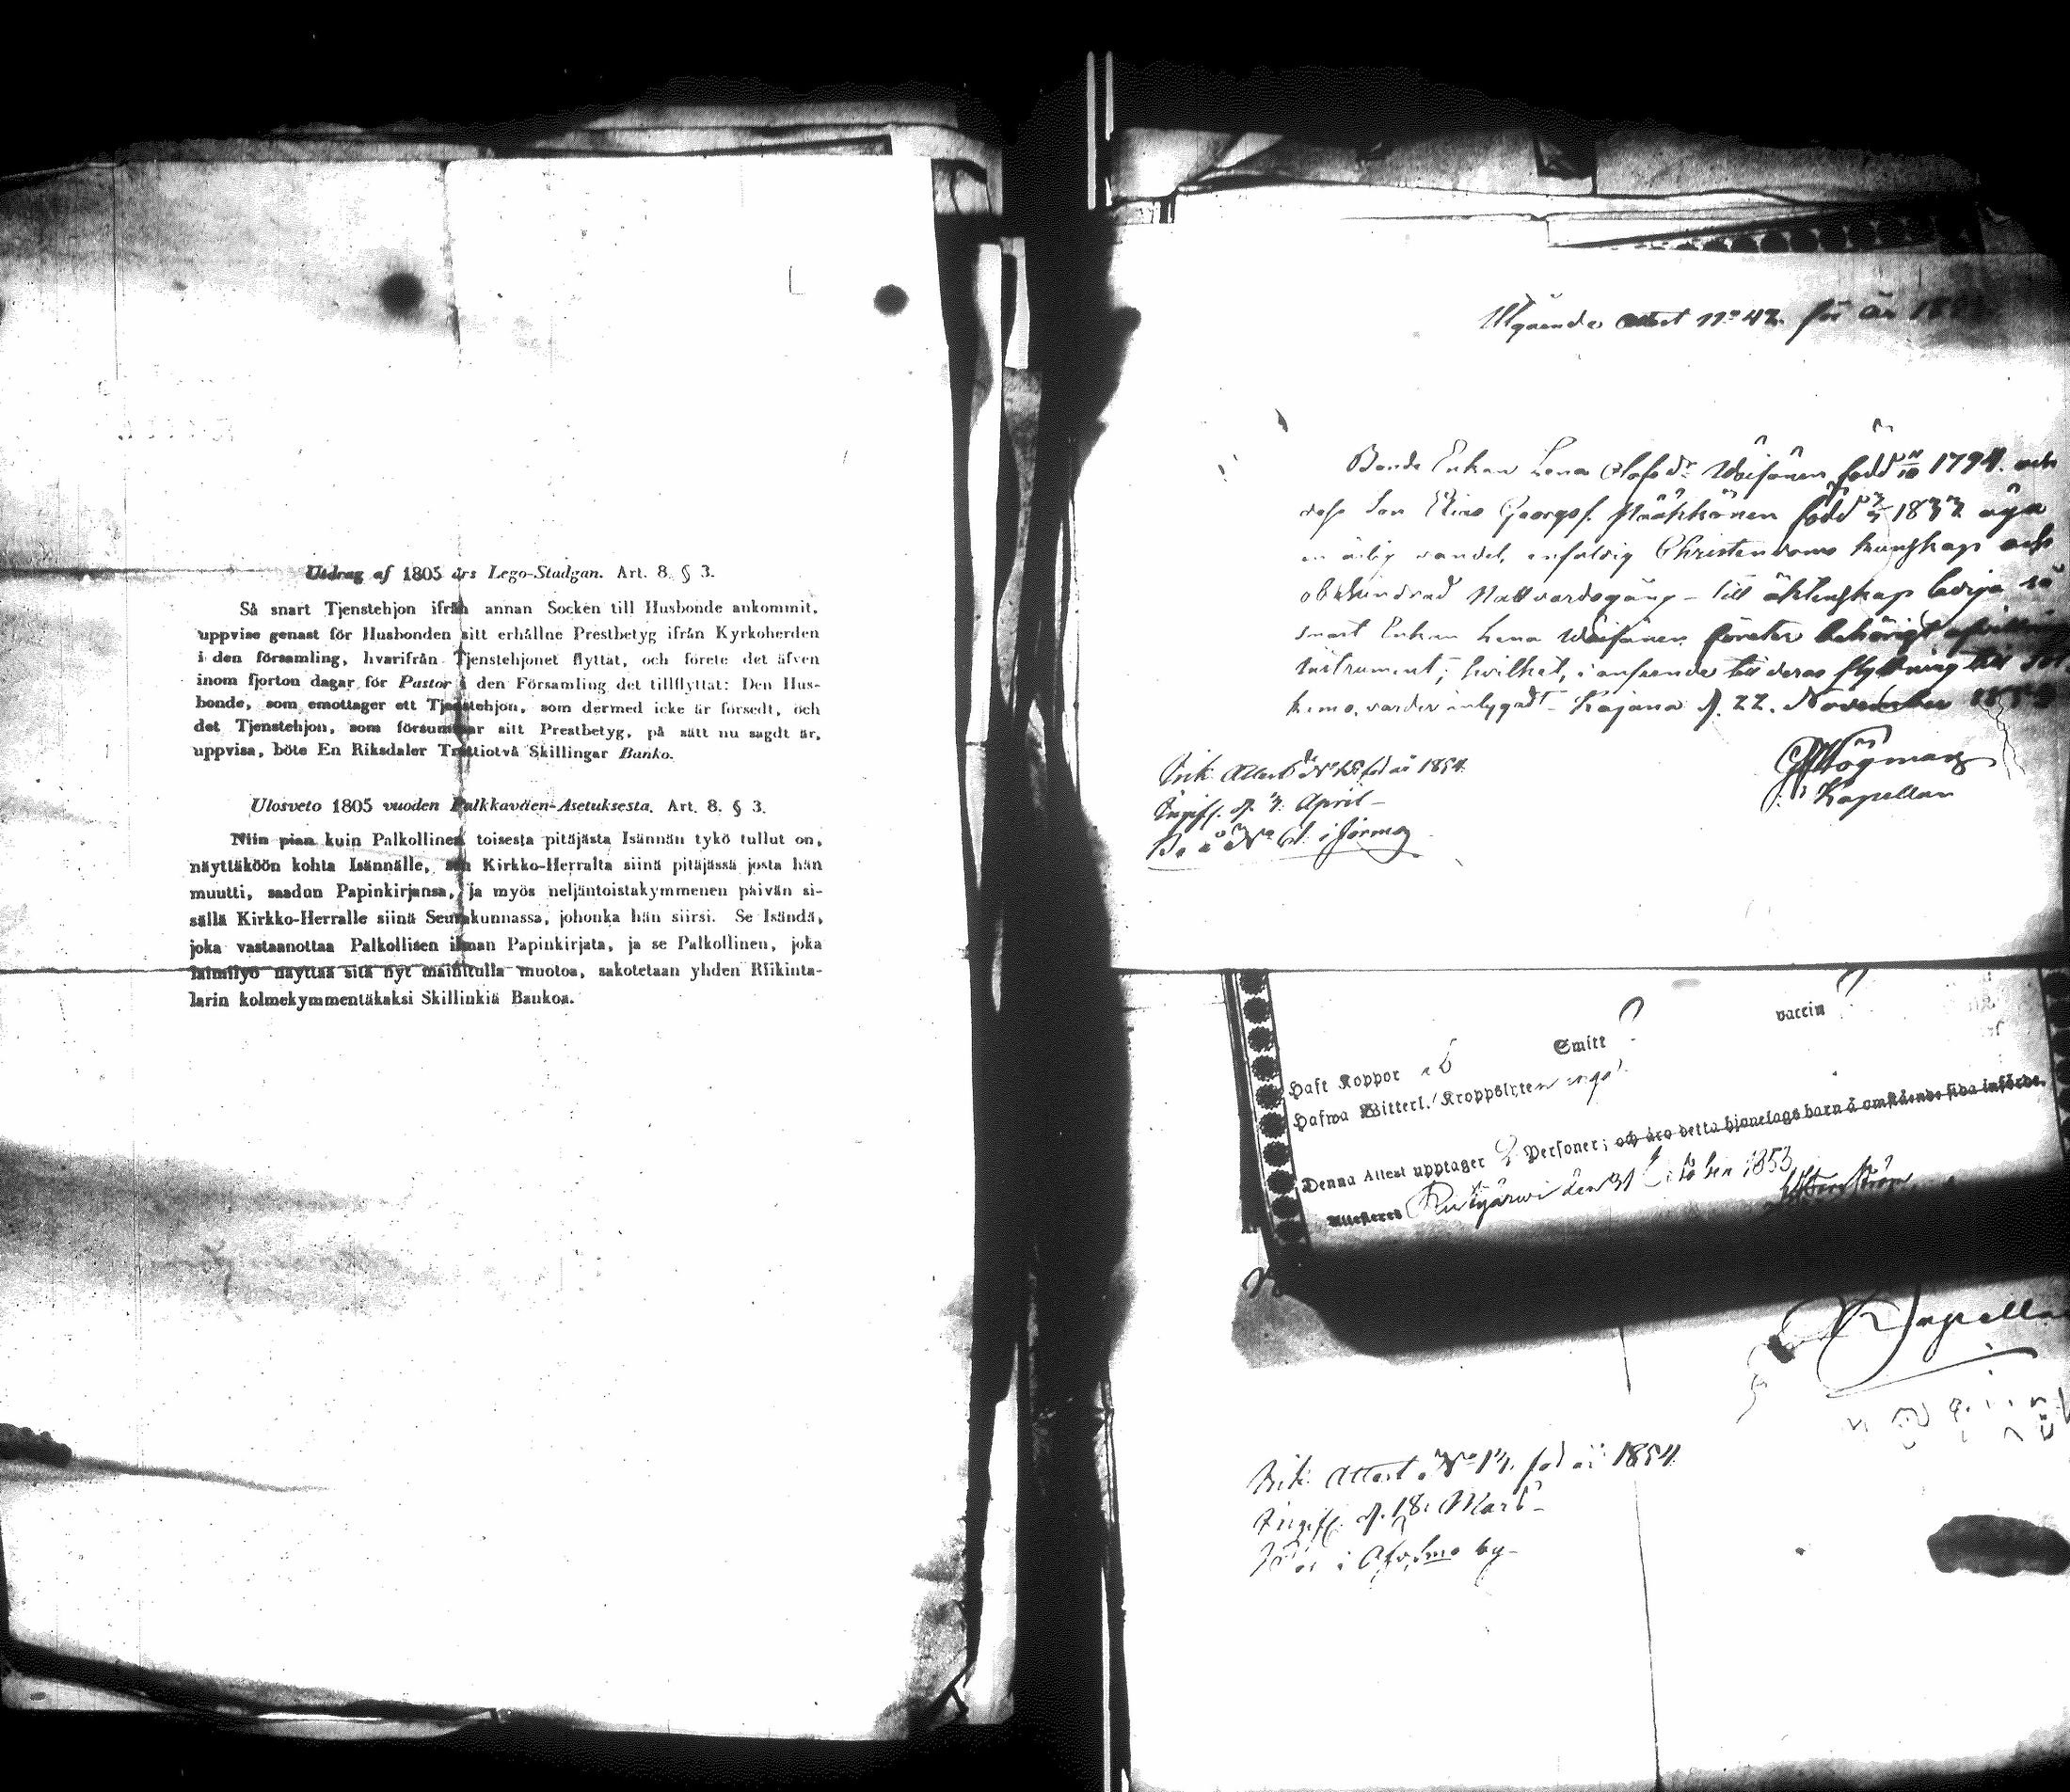 Utdrag af 1805 års Lego-Stadgan. Art. 8. § 3.
Så snart Tjenstehjon ifrån annan Socken till Husbonde ankommit,
uppvise genast för Husbonden sitt erhållne Prestbetyg ifrån Kyrkoherden
i den församling, hvarifrån Tjenstehjonet flyttat, och förete det äfven
inom fjorton dagar för Pastor i den Församling det tillflyttat: Den Hus-
bonde, som emottager ett Tjenstehjon, som dermed icke är försedt, och
det Tjenstehjon, som försummar sitt Prestbetyg, på sätt nu sagdt är,
uppvisa, böte En Riksdaler Trettiotvå Skillingar Banko.
Ulosveto 1805 vuoden Palkkaväen-Asetuksesta. Art. 8. § 3.
Niin pian kuin Palkollinen toisesta pitäjästä Isännän tykö tullut on,
näyttäköön kohta Isännälle, sen Kirkko-Herralta siinä pitäjässä josta hän
muutti, saadun Papinkirjansa, ja myös neljäntoistakymmenen päivän si-
sällä Kirkko-Herralle siinä Seurakunnassa, johonka hän siirsi. Se Isändä,
joka vastaanottaa Palkollisen ilman Papinkirjata, ja se Palkollinen, joka
laimilyö näyttää sitä nyt mainitulla muotoa, sakotetaan yhden Riikinta-
larin kolmekymmentäkaksi Skillinkiä Bankoa.
Utgående Attest No 42. för år
Bonde Enkan Lena Olofsdr Wäisänen född 1794. och
dess Son Elias Georgsf. Pääkkönen född 183 äga
en ärlig vandel, enfaldig Christendoms kunskap och
obehindrad Nattvardsgång - till äktenskap lediga så
snart Enkan Lena Wäisänen företer behörigt afvittrings
instrument; hvilket, i anseende till deras flyttning till Sot
kamo, varder intygadt - Kajana d. 22. November
Högman
Kapellan
Ink. Attest No för år 1854.
Ingift. d. April -
Haft Koppor
Smitt
vaccin
Hafwa Witterl. Kroppslyten inga
Denna Attest upptager 2 Personer; och äro detta hjonelags barn å omstående sida införde.
Attesteras Ristijärwi den 31 October 1853
Kapellan
Ink. Attest No 14. för år 1854.
Ingift. d. 18. Mars -
by -